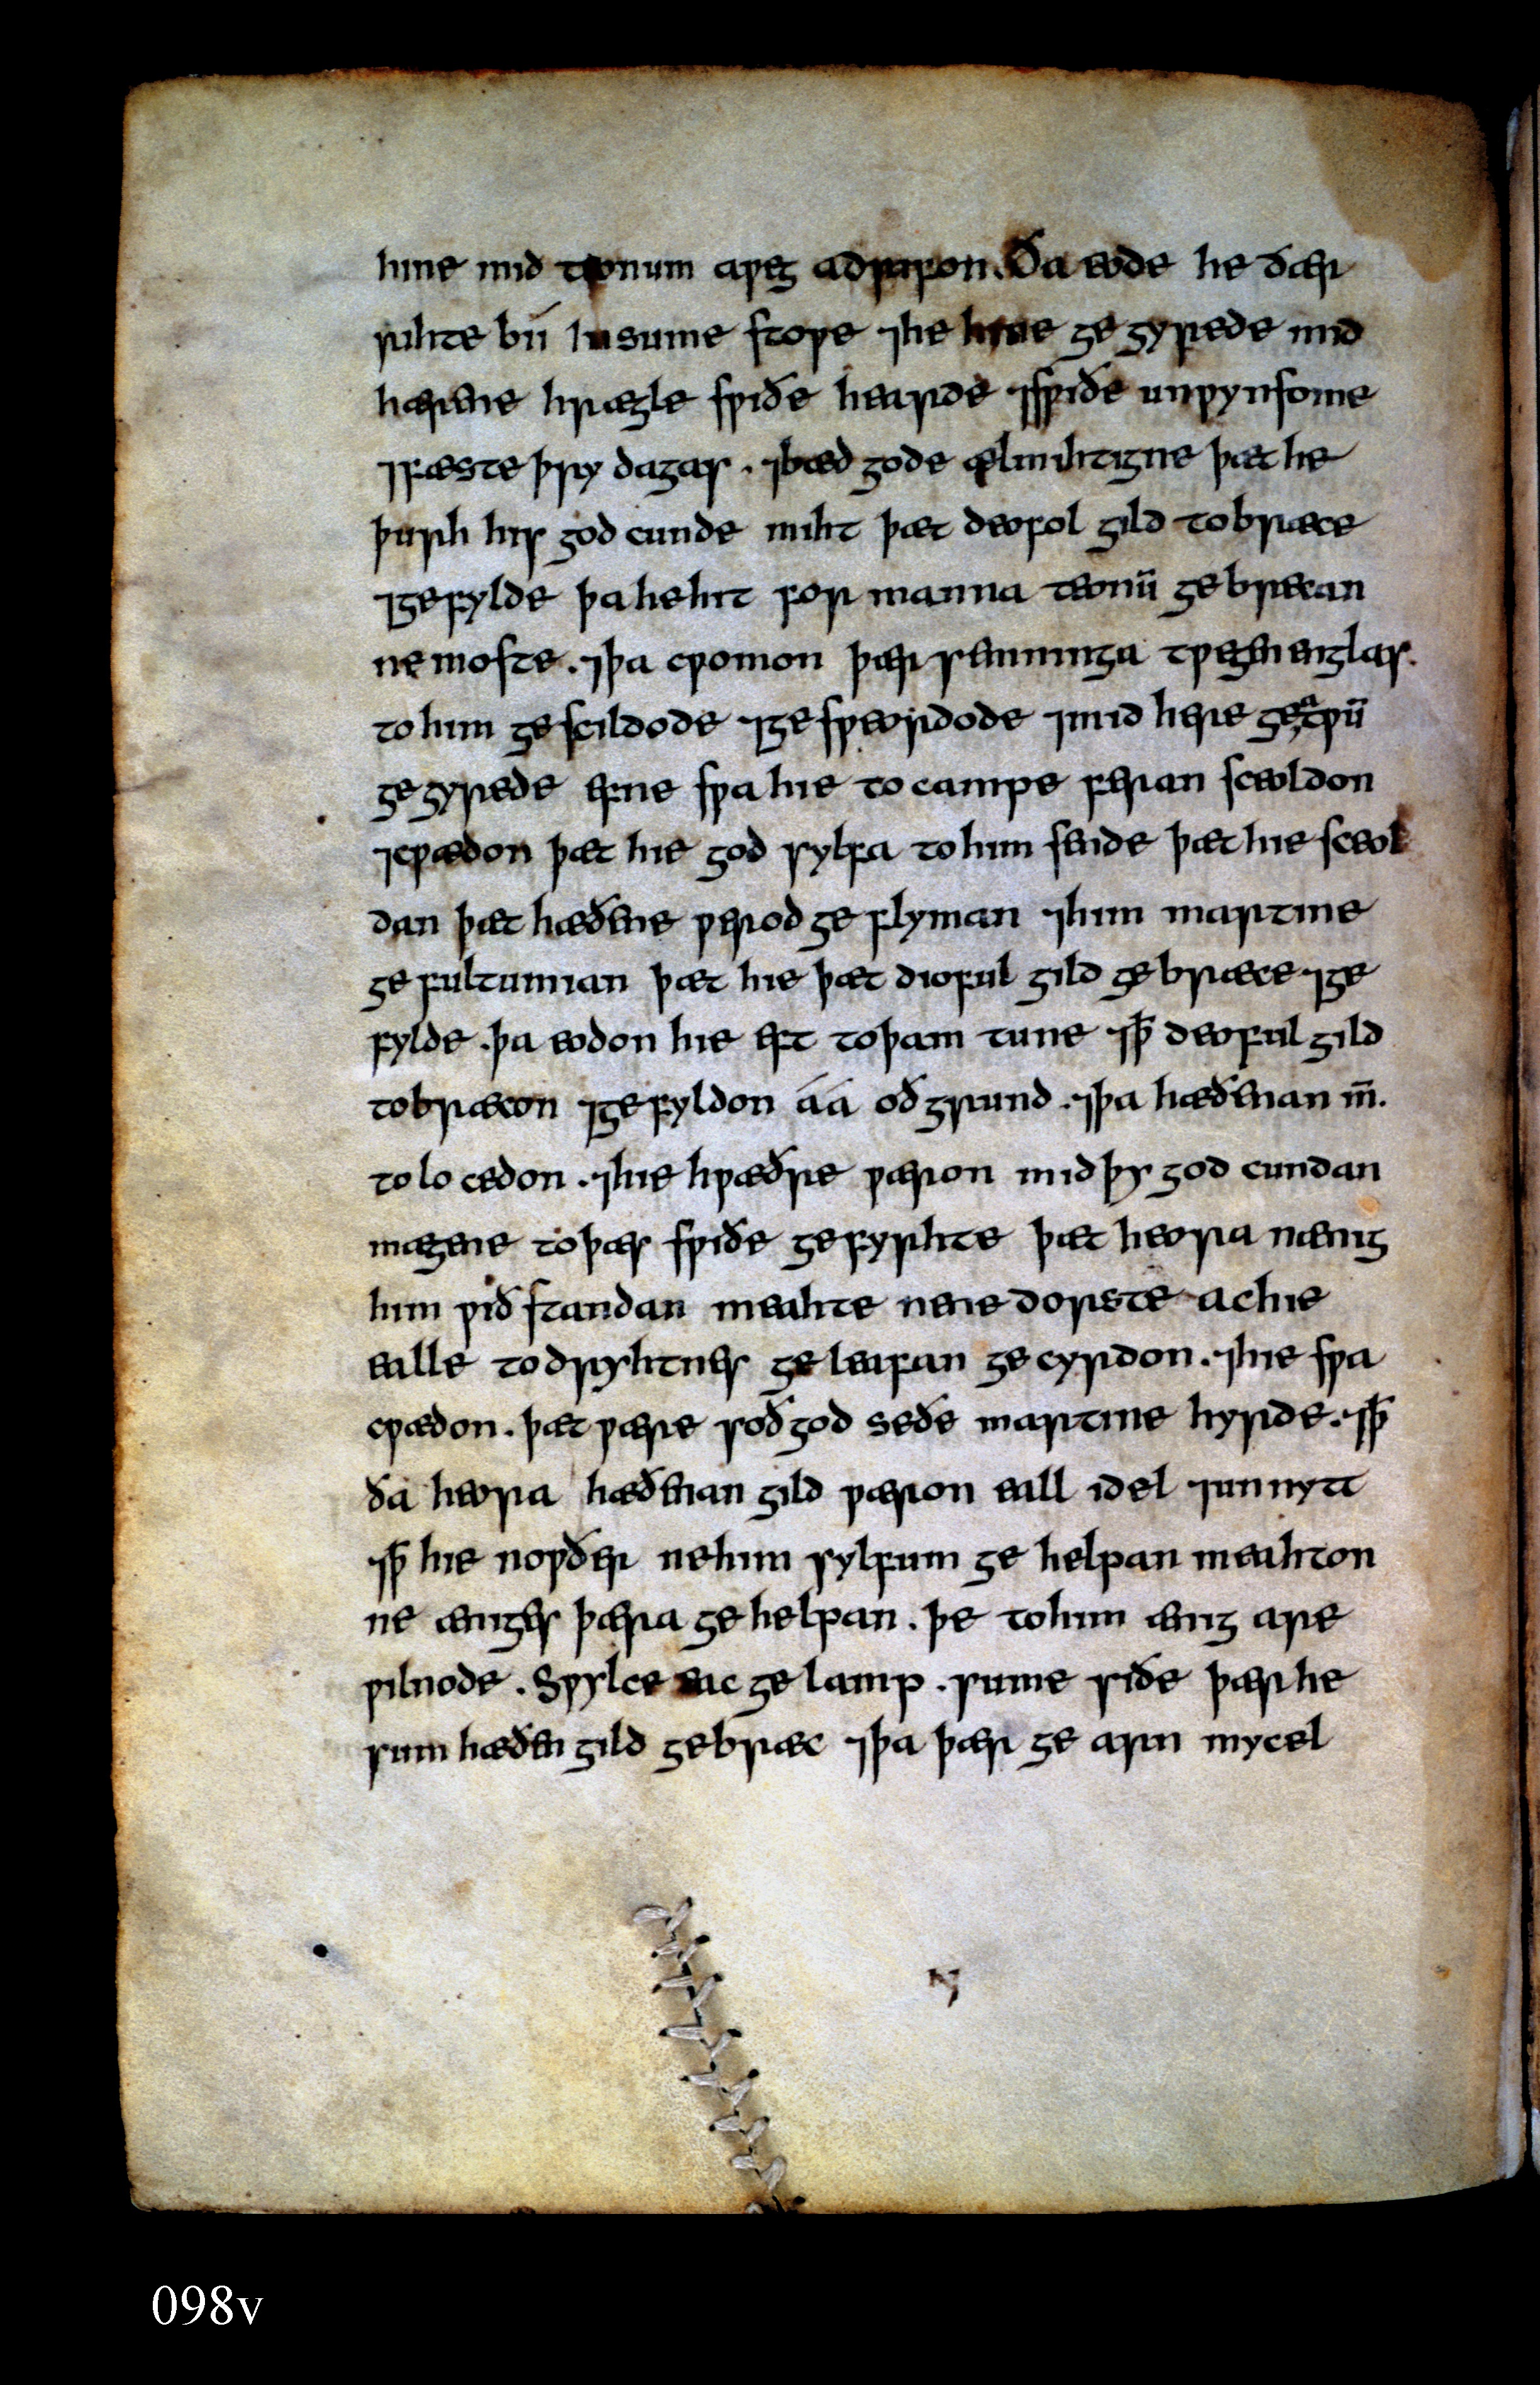 hine mid teonum aƿeg adrifon. Ða eode he ðær
rihte bíí In sume stoƿe ⁊he hine ge gyrede mid
hærene hrægle sƿiðe hearde ⁊sƿiðe unƿynsome
⁊fæste þry dagas . ⁊bæd gode ælmihtigne þæt he
þurh his god cunde miht þæt deofol gild tobræce
⁊gefylde þa he hit for manna teonū ge brecan
ne moste . ⁊þa cƿomon þær semninga tƿegen englas.
to him ge scildode ⁊ge sƿeordode ⁊mid here geatƿū
ge gyrede efne sƿa hie to campe feran sceoldon
⁊cƿædon þæt hie god sylfa to him sende þæt hie sceol
dan þæt hæðene ƿerod ge flyman ⁊him martine
ge fultumian þæt hie þæt dioful gild ge bræce ⁊ge
fylde . þa eodon hie eft to þam tune ⁊ꝥ deoful gild
tobræcon ⁊ge fyldon áá oð grund . ⁊þa hæðenan m̄.
to lo cedon . ⁊hie hƿæðre ƿæron mid þy god cundan
mægene to þæs sƿiðe ge fyrhte þæt heora nænig
him ƿið standan meahte ne ne dorste ac hie
ealle to dryhtnes ge leafan ge cyrdon . ⁊hie sƿa
cƿædon . þæt ƿære soð god se ðe martine hyrde . ⁊ꝥ
ða heora hæðenan gild ƿæron eall idel ⁊unnytt
⁊ꝥ hie noƿðer ne him sylfum ge helpan meahton
ne æniges þæra ge helpan . þe to him ænig are
ƿilnode . Sƿylce eac ge lamp . sume siðe þær he
sum hæðen gild ge bræc ⁊þa þær ge arn mycel
098v